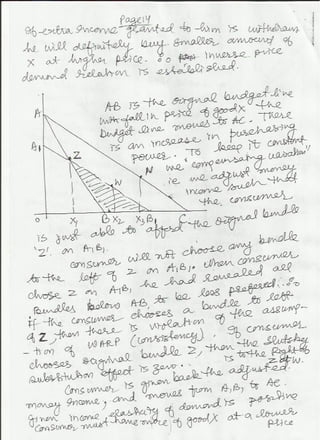 Page 14
If extra income granted to him is withdrawn
he will definitely buy smaller amount of
X at higher price. So inverse price
demand relation is established.
AB is the orignal budget line
with fall in price of good X the
budget line moves to AC. There
is an increase in purchasing
power. To keep it constant
we 'compensating variation'
ie we adjust money
income such that
the consumer
A
A1
Z
W
N
O
X1
B X2
X3 B1
C
is just able to afford the orignal bundle
'Z' on A1B1.
Consumer will not choose any bundle
to the left of Z on A1B1. When consumer
chose Z on A1B1 he had revealed all
bundles below AB, to be less prefered. So
if the consumer chooses a bundle to left
of Z, then there is violation of the assump-
-tion of WARP (consistency). If consumer
chooses orignal bundle Z, then the Slutsky
substitution effect is zero. is to the Right of
Consumer is given back the adjusted
money income, and moves from A1B1 to AC.
Given income elasticity of demand is positive
Consumer must have more of good X at a lower
price